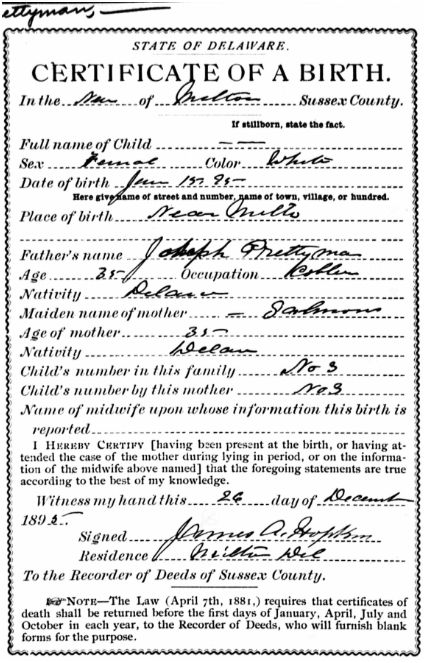 STATE OF DELAWARE.
CERTIFICATE OF A BIRTH.
In the Near of Milton Sussex County.
If stillborn, state the fact.
Full name of Child — —
Sex Femal Color White
Date of birth 15. 95—
Here give name of street and number, name of town, village, or hundred.
Place of birth Near Milto
Father's name Joseph Prettyman
Age 35- Occupation
Nativity Delaw
Maiden name of mother — Salmons
Age of mother 35—
Nativity Delaw
Child's number in this family No 3
Child's number by this mother No 3
Name of midwife upon whose information this birth is
reported
I HEREBY CERTIFY [having been present at the birth, or having at-
tended the case of the mother during lying in period, or on the informa-
tion of the midwife above named] that the foregoing statements are true
according to the best of my knowledge.
Witness my hand this 26 day of Decemt
1895.
Signed James A. Hopkin
Residence Milton Del
To the Recorder of Deeds of Sussex County.
NOTE—The Law (April 7th, 1881,) requires that certificates of
death shall be returned before the first days of January, April, July and
October in each year, to the Recorder of Deeds, who will furnish blank
forms for the purpose.